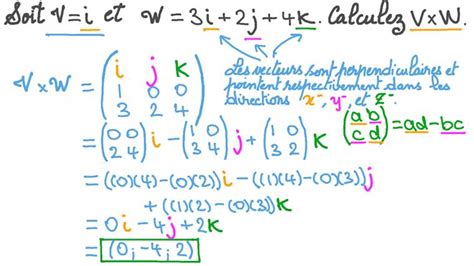 Soit V=i et W=3i+2j+4k. Calculez V×W.
Les vecteurs sont perpendiculaires et
pointent respectivement dans les
directions x⁻, y⁻, et z⁻.
V×W = (i j k
1 0 0
3 2 4)
= (0 0
2 4) i − (1 0
3 4) j + (1 0
3 2) k
(a b
c d) = ad−bc
= ((0)(4)−(0)(2))i − ((1)(4)−(0)(3))j
+ ((1)(2)−(0)(3))k
= 0i−4j+2k
= (0, −4, 2)